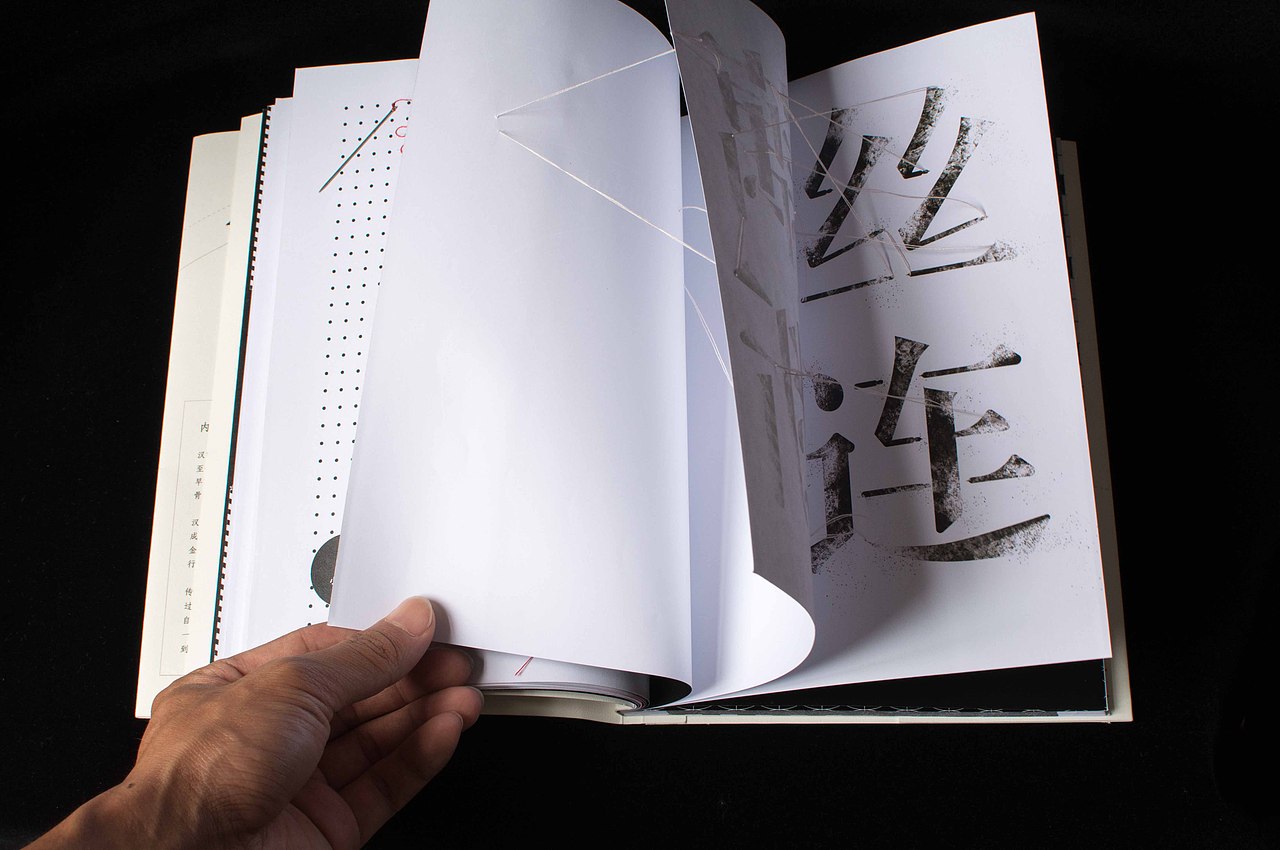 内
汉
至
早
骨
汉
成
金
行
传
过
自
一
到
丝
连